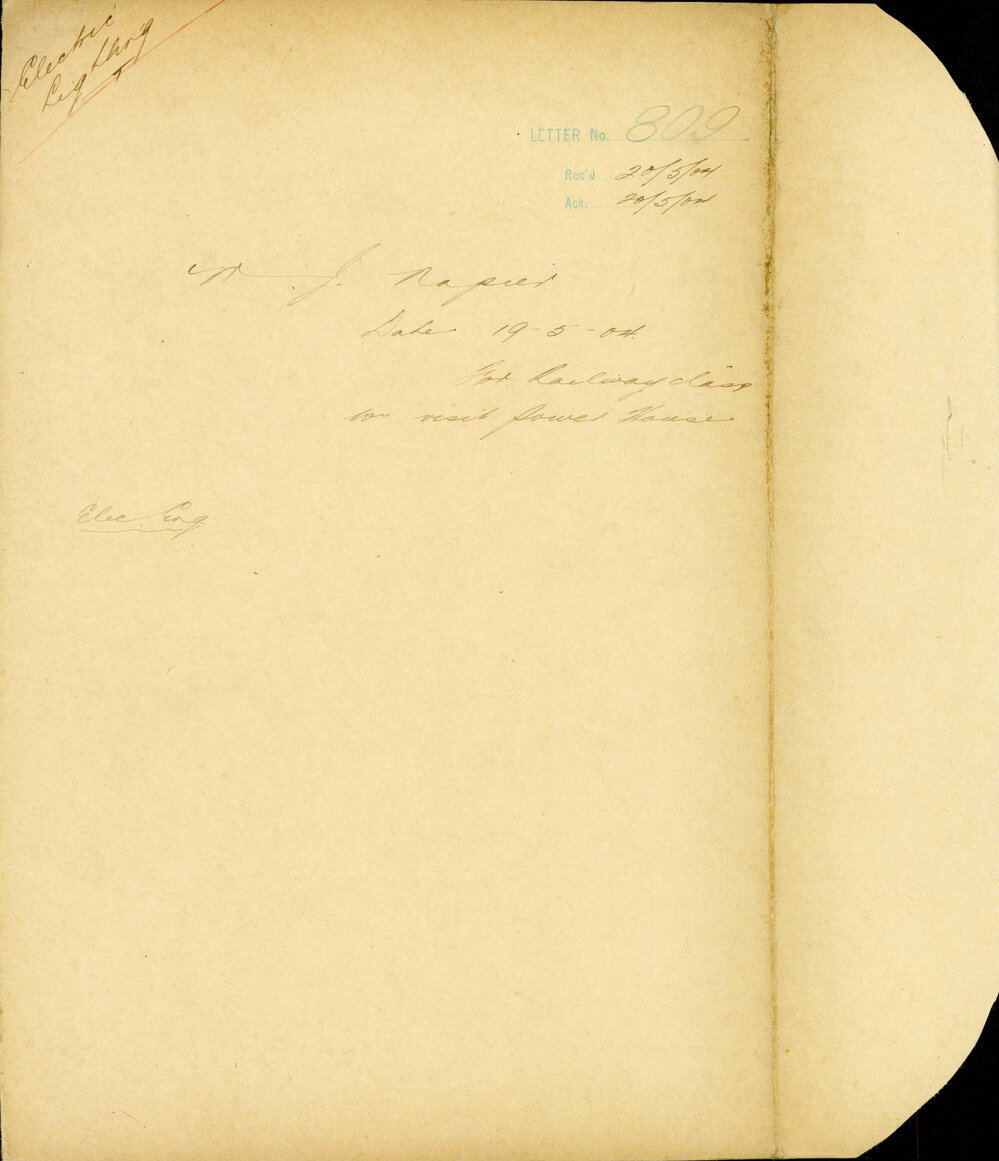 Electric
Lighting
LETTER No. 809
Rec'd 20/5/04
Ack. 20/5/04
J. Napier
Date 19-5-04
For Railway class
visit Power House
Elec. Eng